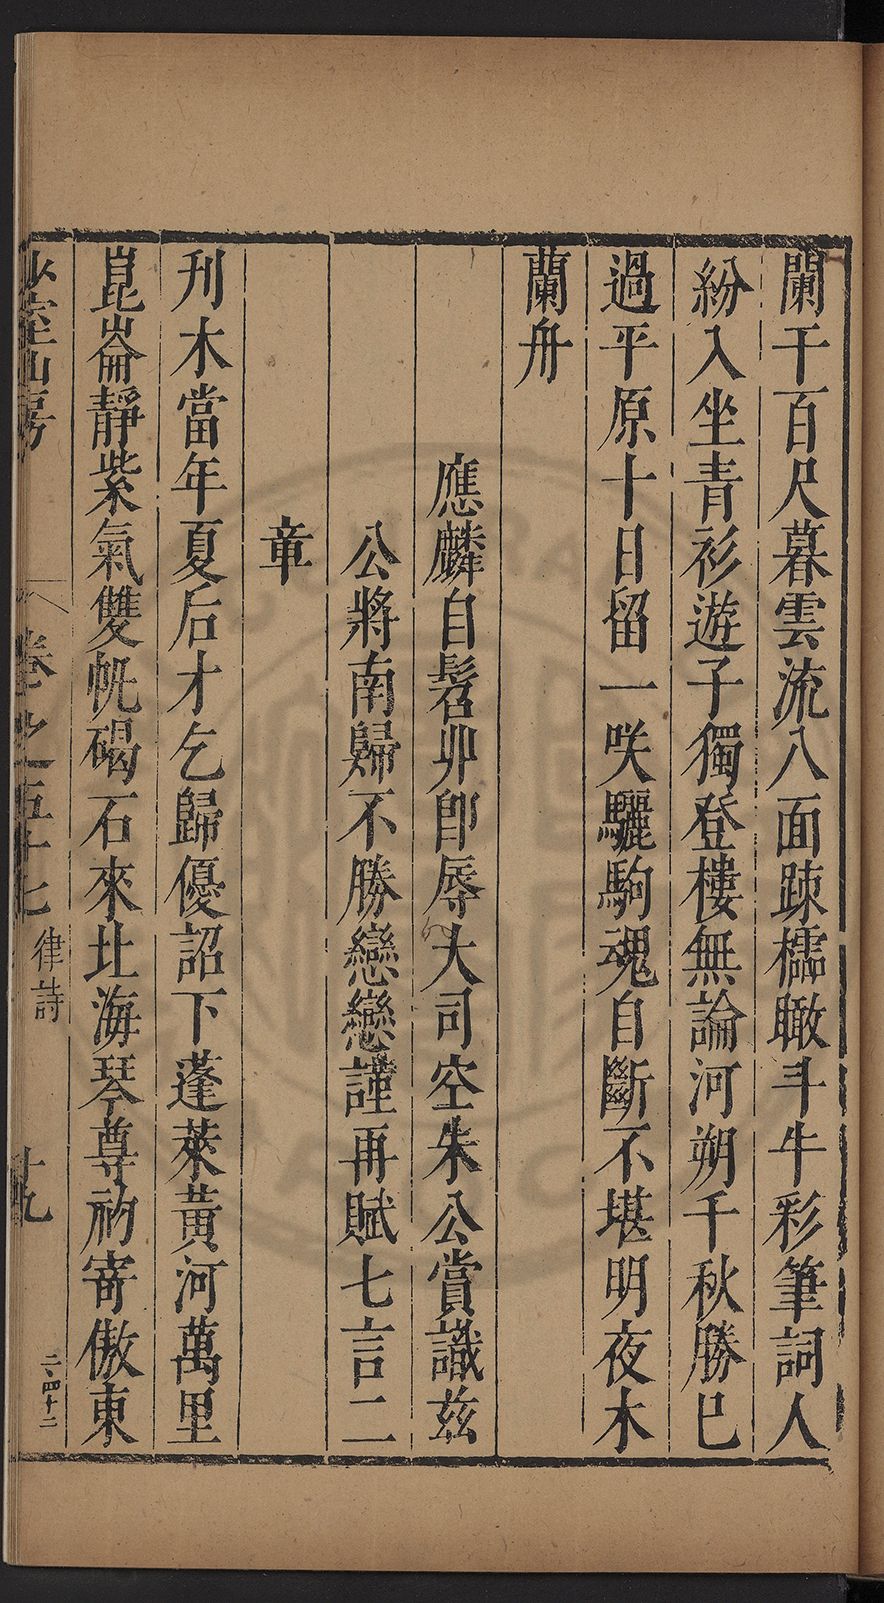 闌干百尺暮雲流八面踈櫺瞰斗牛彩筆詞人
紛入坐青衫遊子獨登樓無論河朔千秋勝巳
過平原十日留一咲驪駒魂自斷不堪明夜木
蘭舟
應麟自髫丱卽辱大司空朱公賞識兹
公將南歸不勝戀戀謹再賦七言二
章
刋木當年夏后才乞歸優詔下蓬萊黃河萬里
崑崙靜紫氣雙帆碣石來北海琴尊初寄傲東
少室山房
卷之五十七
律詩
十九
二、四十二